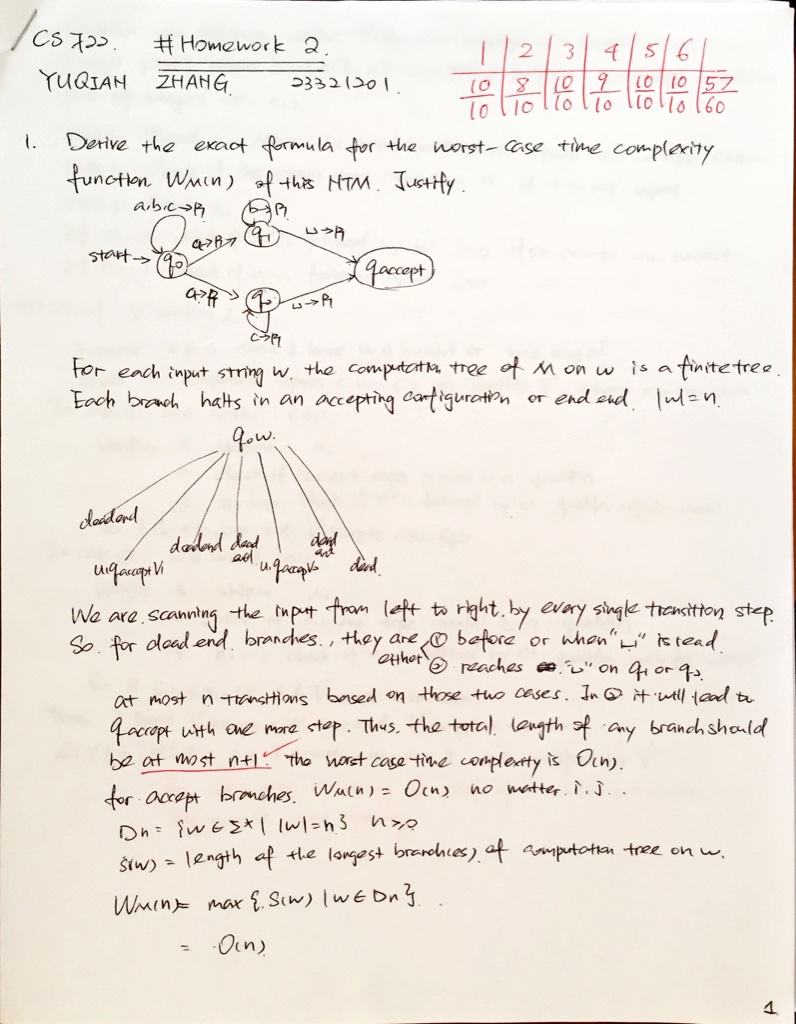 CS 722. # Homework 2.
YUQIAN ZHANG 23321201.
1 2 3 4 5 6
10/10 8/10 10/10 9/10 10/10 10/10 57/60
1. Derive the exact formula for the worst-case time complexity
function WM(n) of this NTM. Justify.
a,b,c→R b→R
a→R q1 ⊔→R
start→ q0 qaccept
a→R q2 ⊔→R
c→R
For each input string w, the computation tree of M on w is a finite tree.
Each branch halts in an accepting configuration or end end. |w|=n.
q0w.
deadend
u1qacceptV1 deadend dead end u2qacceptV2 dead end dead
We are scanning the input from left to right by every single transition step.
So for dead end branches, they are either ① before or when "⊔" is read
② reaches "⊔" on q1 or q2.
at most n transitions based on those two cases. In ② it will lead to
qaccept with one more step. Thus, the total length of any branch should
be at most n+1. ✓ The worst case time complexity is O(n).
for accept branches. WM(n) = O(n) no matter i, j...
Dn = {w ∈ Σ* | |w|=n} n≥0
S(w) = length of the longest branch(es) of computation tree on w.
WM(n) = max {S(w) | w ∈ Dn}.
= O(n)
1